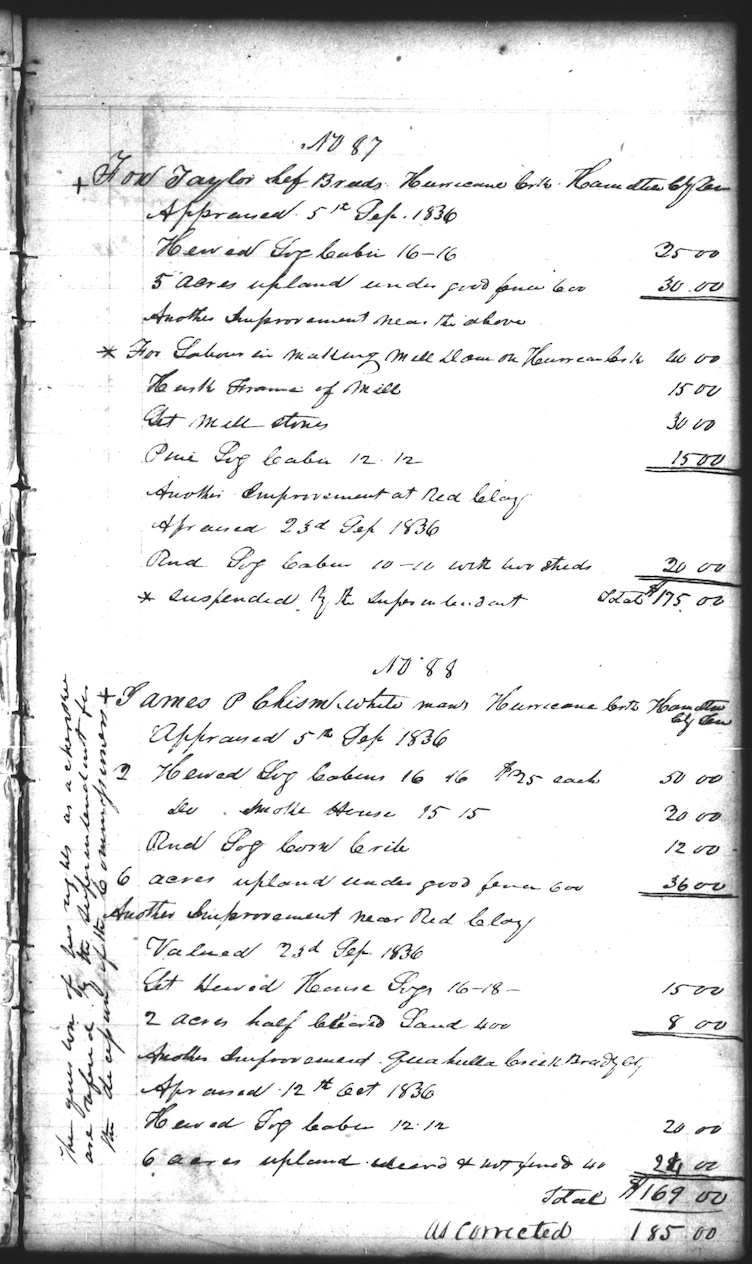 No 87
+ Fox Taylor Hurricane Crk. Hamilton Cty Ten
Appraised 5th Sep. 1836
Hewed Log Cabin 16-16 25 00
5 acres upland under good fence 600 30.00
Another Improvement near the above
* For Labour in making Mill Dam on Hurrican Crk 40 00
Husk Frame of Mill 15 00
Set Mill stones 30 00
Pine Log Cabin 12.12 15 00
Another Improvement at Red Clay
Apraised 23d Sep 1836
Rnd Log Cabin 10-10 with two sheds 20 00
* suspended by the Superintendant Total $175.00
No 88
+ James P Chism white man Hurricane Crk Hamilton
Cty Ten
Appraised 5th Sep 1836
2 Hewed Log Cabins 16 16 $25 each 50 00
Do Smoke House 15 15 20 00
Rnd Log Corn Crib 12 00
6 acres upland under good fence 600 36 00
Another Improvement near Red Clay
Valued 23d Sep 1836
Set Hewed House Logs 16-18- 15 00
2 acres half cleared Land 400 8 00
Another Improvement Creek Cty
Apraised 12th Oct 1836
Hewed Log Cabin 12.12 20 00
6 acres upland cleared & not fenced 40 24 00
Total $169 00
As Corrected 185.00
The question of his rights as a cherokee
are referd by the Superintendant for
the decision of the Commissioners